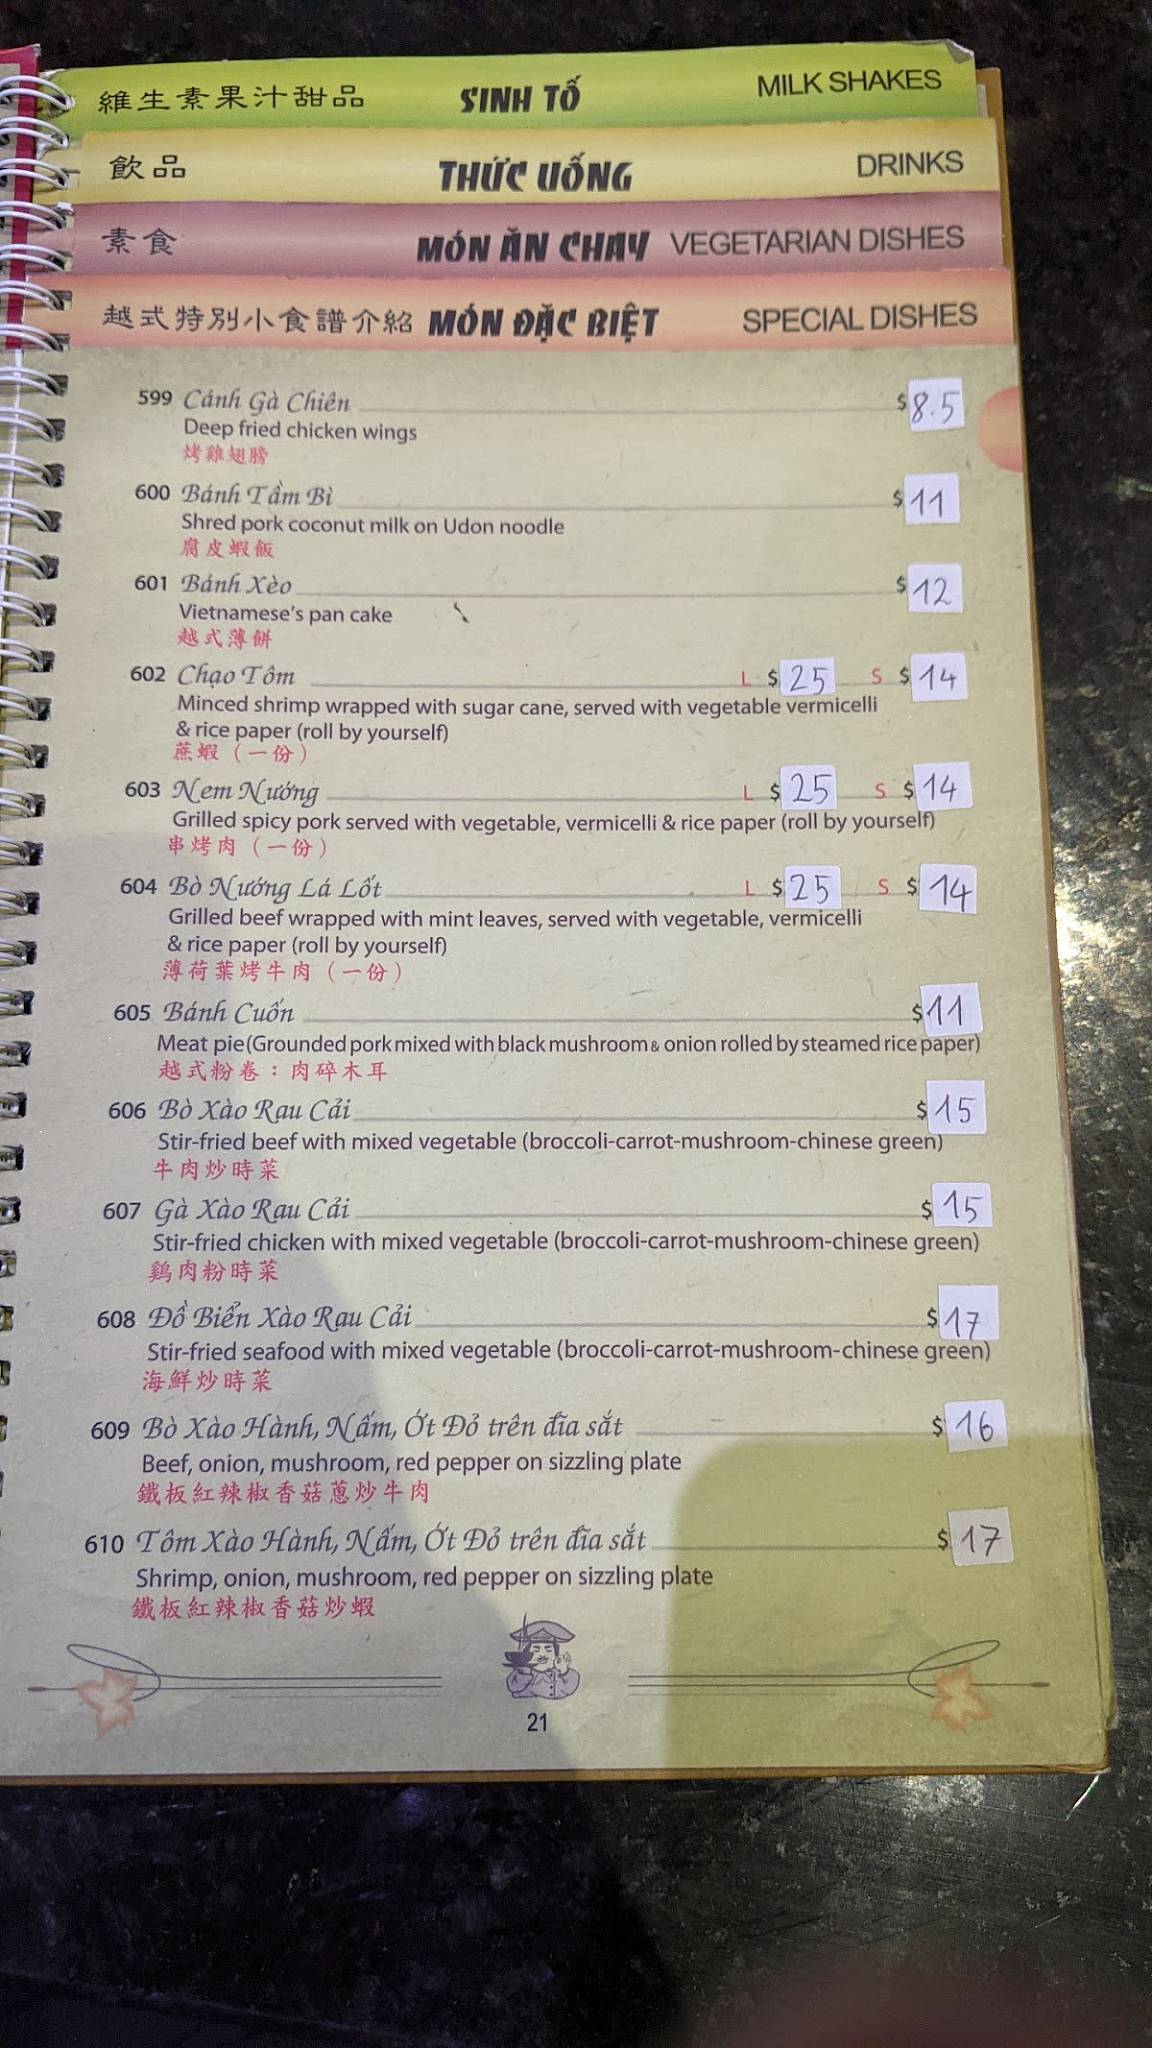 維生素果汁甜品 SINH TỐ MILK SHAKES
飲品 THỨC UỐNG DRINKS
素食 MÓN ĂN CHAY VEGETARIAN DISHES
越式特別小食譜介紹 MÓN ĐẶC BIỆT SPECIAL DISHES
599 Cánh Gà Chiên $8.5
Deep fried chicken wings
烤雞翅膀
600 Bánh Tầm Bì $11
Shred pork coconut milk on Udon noodle
腐皮蝦飯
601 Bánh Xèo $12
Vietnamese's pan cake
越式薄餅
602 Chạo Tôm L $25 S $14
Minced shrimp wrapped with sugar cane, served with vegetable vermicelli
& rice paper (roll by yourself)
蔗蝦（一份）
603 Nem Nướng L $25 S $14
Grilled spicy pork served with vegetable, vermicelli & rice paper (roll by yourself)
串烤肉（一份）
604 Bò Nướng Lá Lốt L $25 S $14
Grilled beef wrapped with mint leaves, served with vegetable, vermicelli
& rice paper (roll by yourself)
薄荷葉烤牛肉（一份）
605 Bánh Cuốn $11
Meat pie(Grounded pork mixed with black mushroom & onion rolled by steamed rice paper)
越式粉卷：肉碎木耳
606 Bò Xào Rau Cải $15
Stir-fried beef with mixed vegetable (broccoli-carrot-mushroom-chinese green)
牛肉炒時菜
607 Gà Xào Rau Cải $15
Stir-fried chicken with mixed vegetable (broccoli-carrot-mushroom-chinese green)
鷄肉粉時菜
608 Đồ Biển Xào Rau Cải $17
Stir-fried seafood with mixed vegetable (broccoli-carrot-mushroom-chinese green)
海鮮炒時菜
609 Bò Xào Hành, Nấm, Ớt Đỏ trên đĩa sắt $16
Beef, onion, mushroom, red pepper on sizzling plate
鐵板紅辣椒香菇蔥炒牛肉
610 Tôm Xào Hành, Nấm, Ớt Đỏ trên đĩa sắt $17
Shrimp, onion, mushroom, red pepper on sizzling plate
鐵板紅辣椒香菇炒蝦
21